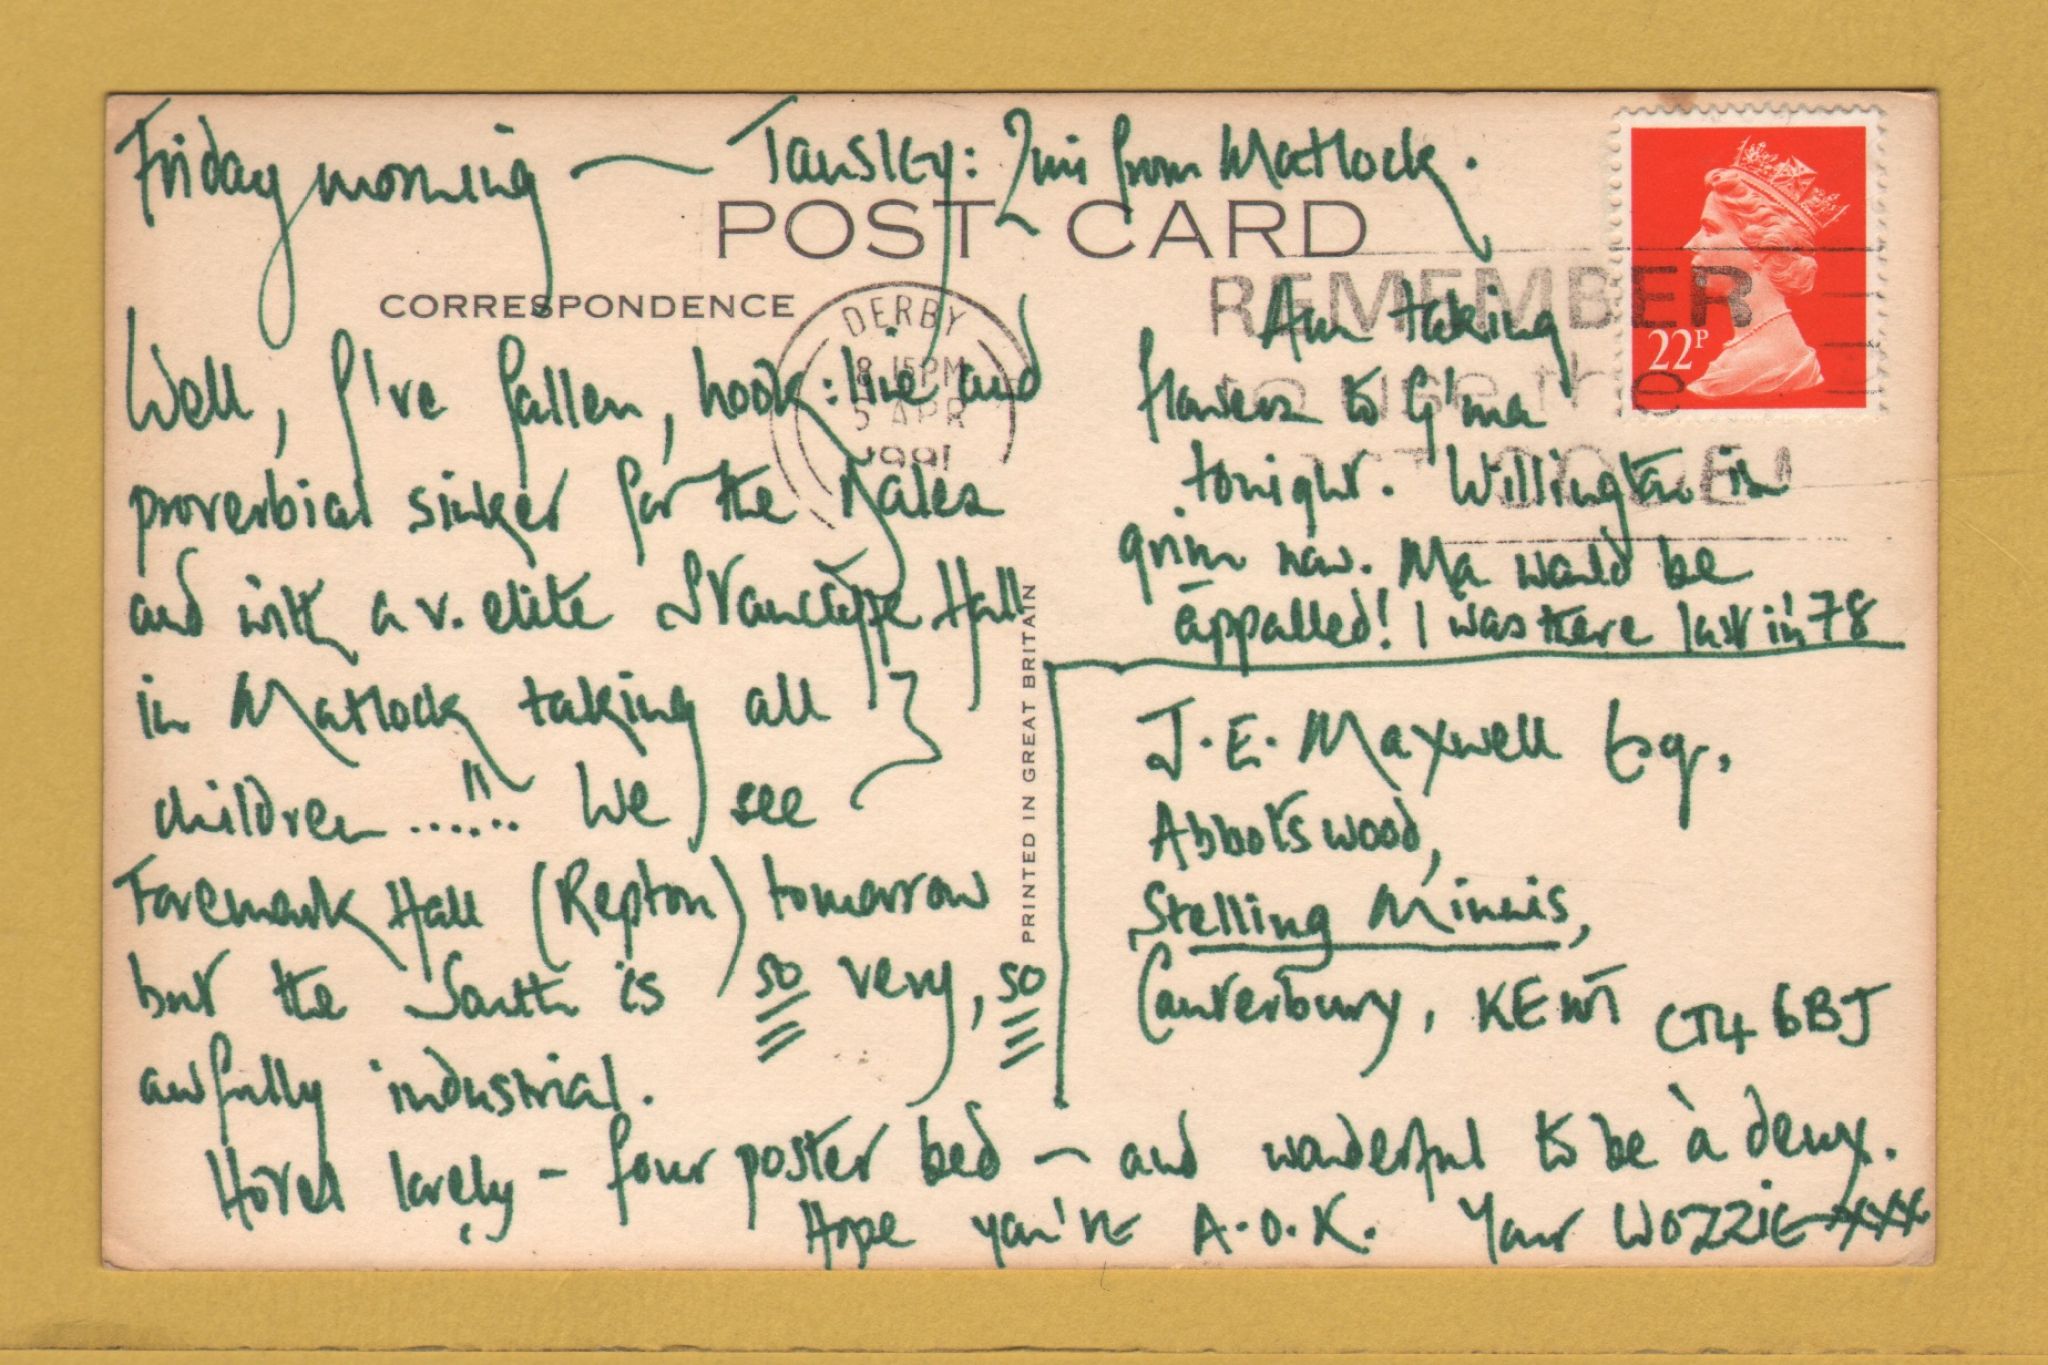 Friday morning — Tansley: 2mi from Matlock.
POST CARD
CORRESPONDENCE
DERBY
8.15PM
5 APR
1991
REMEMBER
to use the
POSTCODE
22P
Well, I've fallen, hook: line and
proverbial sinker for the Dales
and with a v. elite Stancliffe Hall
in Matlock taking all
children ......" We see
Foremark Hall (Repton) tomorrow
but the South is so very, so
awfully industrial.
Hotel lovely - four poster bed — and wonderful to be à deux.
Hope you're A.O.K. Your WOZZIE xxx
Am taking
flowers to G'ma
tonight. Willington is
grim now. Ma would be
appalled! I was there last in '78
PRINTED IN GREAT BRITAIN
J. E. Maxwell Esq.,
Abbotswood,
Stelling Minnis,
Canterbury, KENT CT4 6BJ